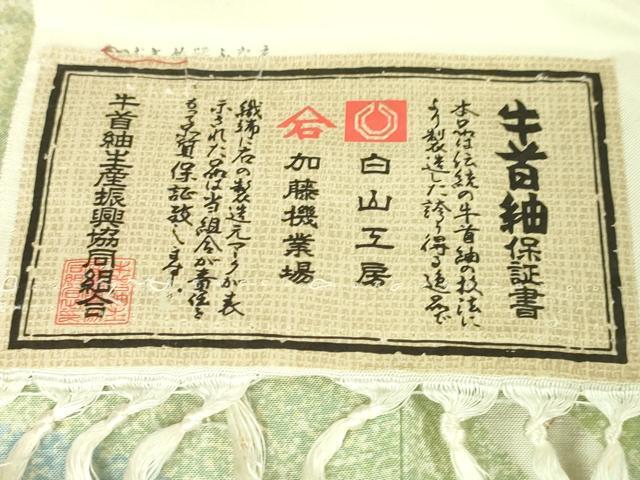 牛首紬保証書
本品は伝統の牛首紬の技法に
より製造した誇り得る逸品で
白山工房
石
加藤機業場
織端に右の製造元マークが表
示された品は当組合が責任を
もって品質保証致します。
牛首紬生産振興協同組合